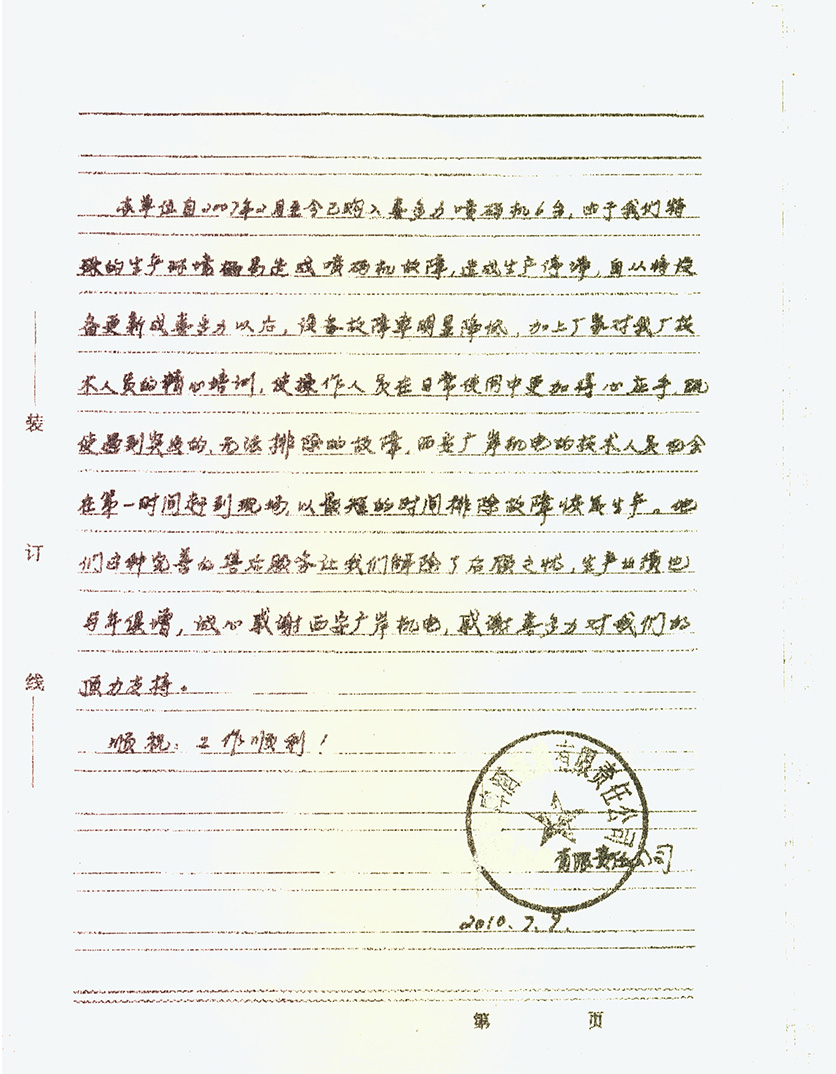 我单位自2007年2月至今已购入喜多力喷码机6台,由于我们特
殊的生产环境极易造成喷码机故障,造成生产停滞,自从将设
备更新成喜多力以后,设备故障率明显降低,加上厂家对我厂技
术人员的精心培训,使操作人员在日常使用中更加得心应手,既
使遇到突发的、无法排除的故障,西安广岸机电的技术人员都会
在第一时间赶到现场,以最短的时间排除故障恢复生产。他
们这种完善的售后服务让我们解除了后顾之忧,生产业绩也
与年俱增,诚心感谢西安广岸机电,感谢喜多力对我们的
顶力支持。
顺祝:工作顺利!
有限责任公司
有限责任公司
2010.7.9.
装
订
线
第 页